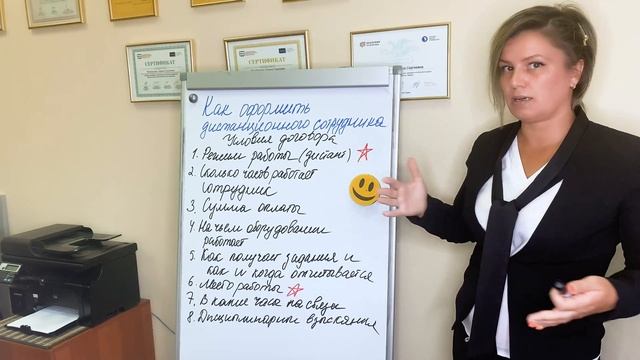 СЕРТИФИКАТ
СЕРТИФИКАТ
Как оформить
дистанционного сотрудника
Условия договора
1. Режим работы (дистант)
2. Сколько часов работает
сотрудник
3. Сумма оплаты
4. На чьем оборудовании
работает
5. Как получает задания и
как и когда отчитывается
6. Место работы
7. В какие часы на связи
8. Дисциплинарн взыскания